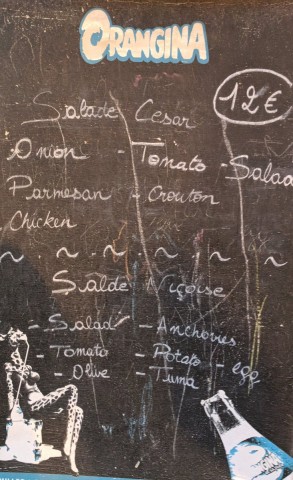 ORANGINA
Salade Cesar 12€
Onion - Tomato - Salad
Parmesan - Crouton
Chicken
Salde Niçoise
- Salad - Anchovies
- Tomato - Potato - egg
- Olive - Tuna